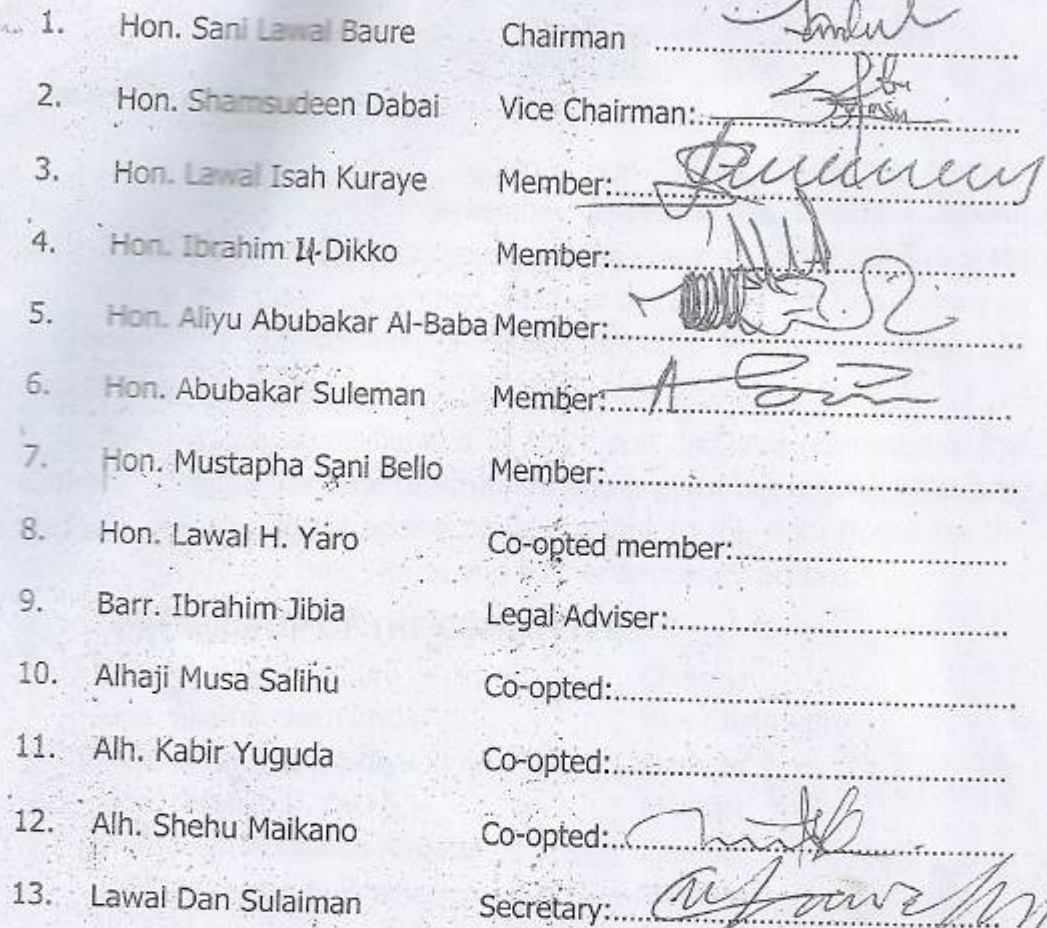 1. Hon. Sani Lawal Baure Chairman ........................
2. Hon. Shamsudeen Dabai Vice Chairman:........................
3. Hon. Lawal Isah Kuraye Member:........................
4. Hon. Ibrahim Dikko Member:........................
5. Hon. Aliyu Abubakar Al-Baba Member:........................
6. Hon. Abubakar Suleman Member:........................
7. Hon. Mustapha Sani Bello Member:........................
8. Hon. Lawal H. Yaro Co-opted member:........................
9. Barr. Ibrahim Jibia Legal Adviser:........................
10. Alhaji Musa Salihu Co-opted:........................
11. Alh. Kabir Yuguda Co-opted:........................
12. Alh. Shehu Maikano Co-opted:........................
13. Lawal Dan Sulaiman Secretary:........................